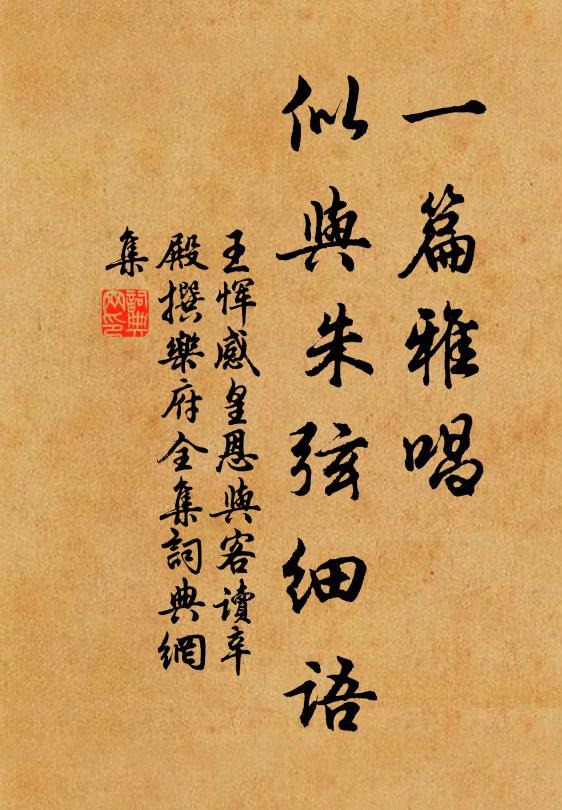 一篇雅唱
似與朱弦細語
王惲感皇恩與客讀辛
殿撰樂府全集詞典網
集
詞典網印